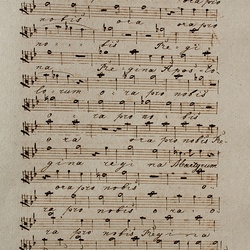 ora pro
nobis ora ora pro
no - - bis Regi
na Regina Apos: to
lorum o: ra pro nobis
o ra pro no: bis
o ra ora pro nobis Re:
gina regi na Martyrum
ora pro nobis o:
ra pro nobis o ra: o:
ra pro nobis Regina